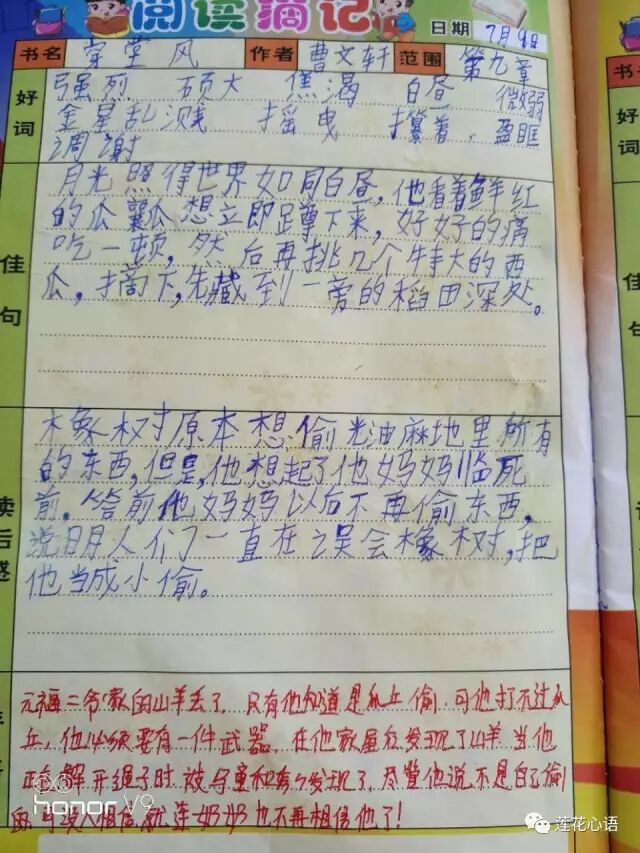 阅读摘记
日期 7月9日
书名 穿堂风 作者 曹文轩 范围 第九章
好词
强烈 硕大 焦渴 白昼 微弱
金星乱溅 摇曳 攥着 盈眶
凋谢
佳句
月光照得世界如同白昼,他看着鲜红
的瓜瓤瓜想立即蹲下来,好好的痛
吃一顿,然后再挑几个特大的西
瓜,摘下,先藏到一旁的稻田深处。
读后感
橡树原本想偷光油麻地里所有
的东西,但是,他想起了他妈妈临死
前。答前他妈妈以后不再偷东西,
说明人们一直在误会橡树,把
他当成小偷。
元福二爷家的山羊丢了,只有他知道是瓜丘偷,可他打不过瓜
丘,他必须要有一件武器,在他家屋后发现了山羊,当他
正解开绳子时被乌童和奶奶发现了,尽管他说不是自己偷
的,可没人相信,就连奶奶也不再相信他了!
书名
好词
佳句
honor V9
莲花心语